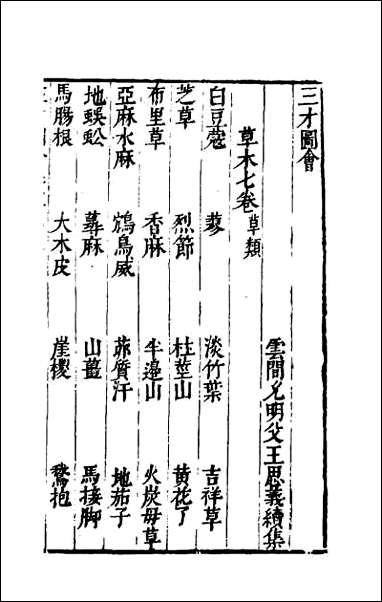 三才圖會
雲間允明父王思義續集
草木七卷草類
白豆蔻 蓼 淡竹葉 吉祥草
芝草 烈節 杜莖山 黃花了
布里草 香麻 半邊山 火炭母草
亞麻水麻 鴆鳥威 茆質汗 地茄子
地蜈蚣 蕁麻 山薑 馬接脚
馬腸根 大木皮 崖椶 鵞抱